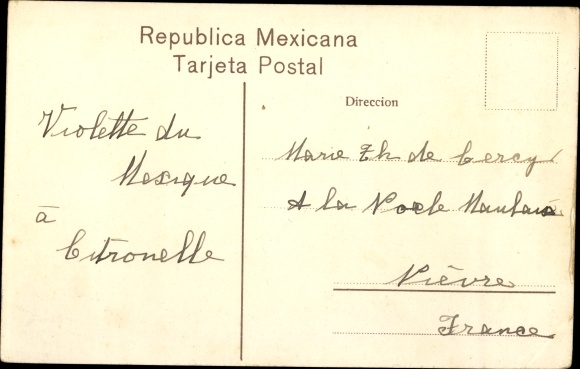 Republica Mexicana
Tarjeta Postal
Violette du
Mexique
à
Citronelle
Direccion
Marie Th de Cercy
A la Roche
Nièvre
France